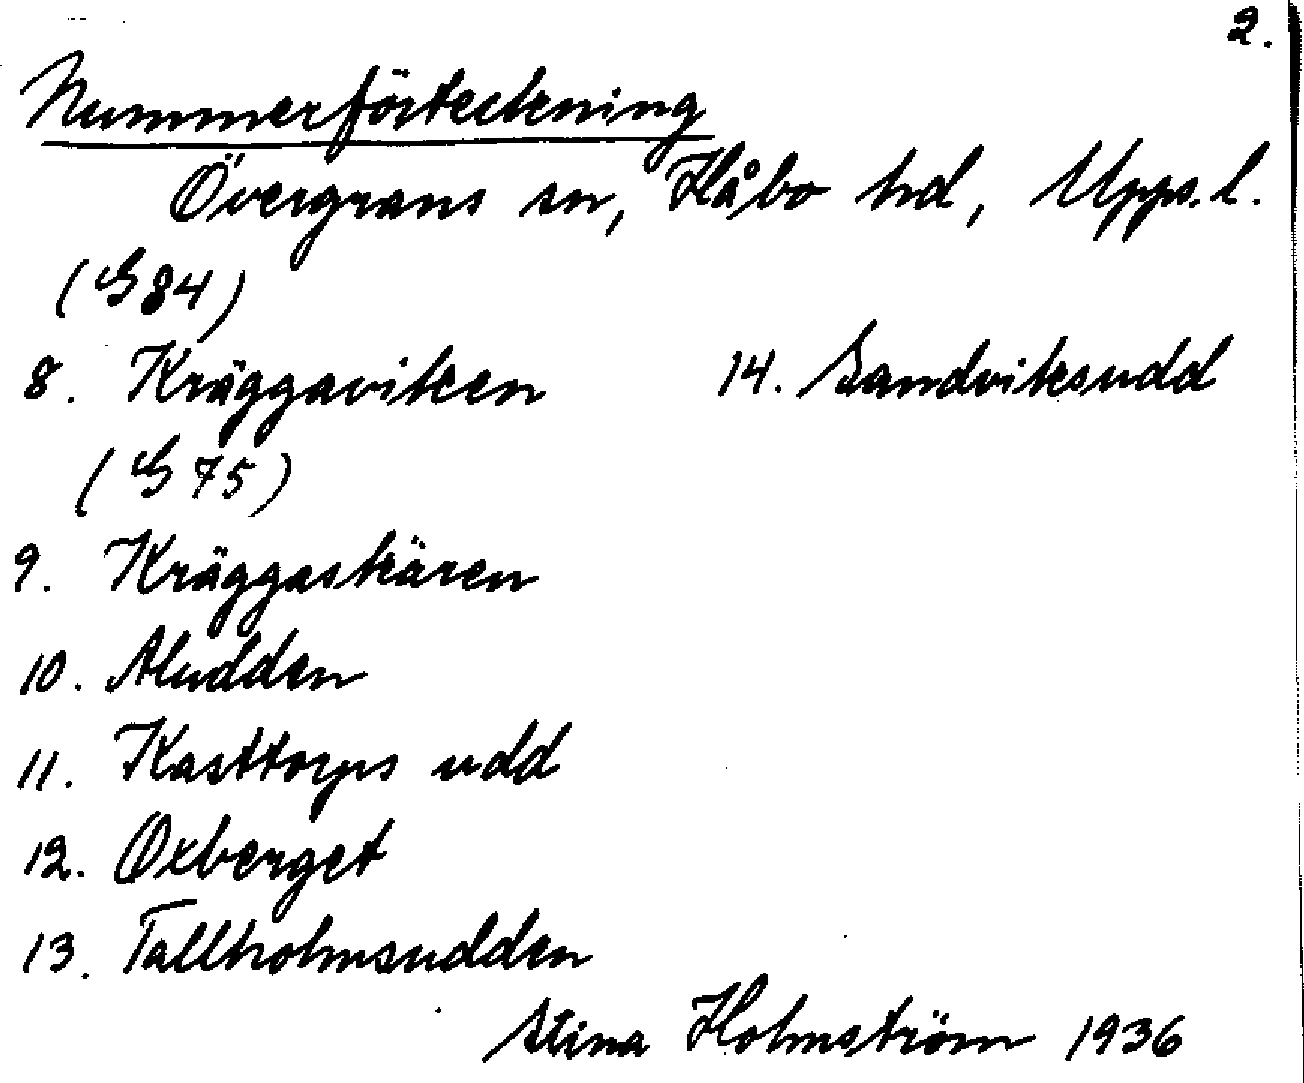 2.
Nummerförteckning
Övergrans sn, Håbo hd, Upps. l.
(S 84)
8. Kräggaviken
14. Sandviksudd
(S 75)
9. Kräggaskären
10. Aludden
11. Kasttorps udd
12. Oxberget
13. Tallholmsudden
Stina Holmström 1936